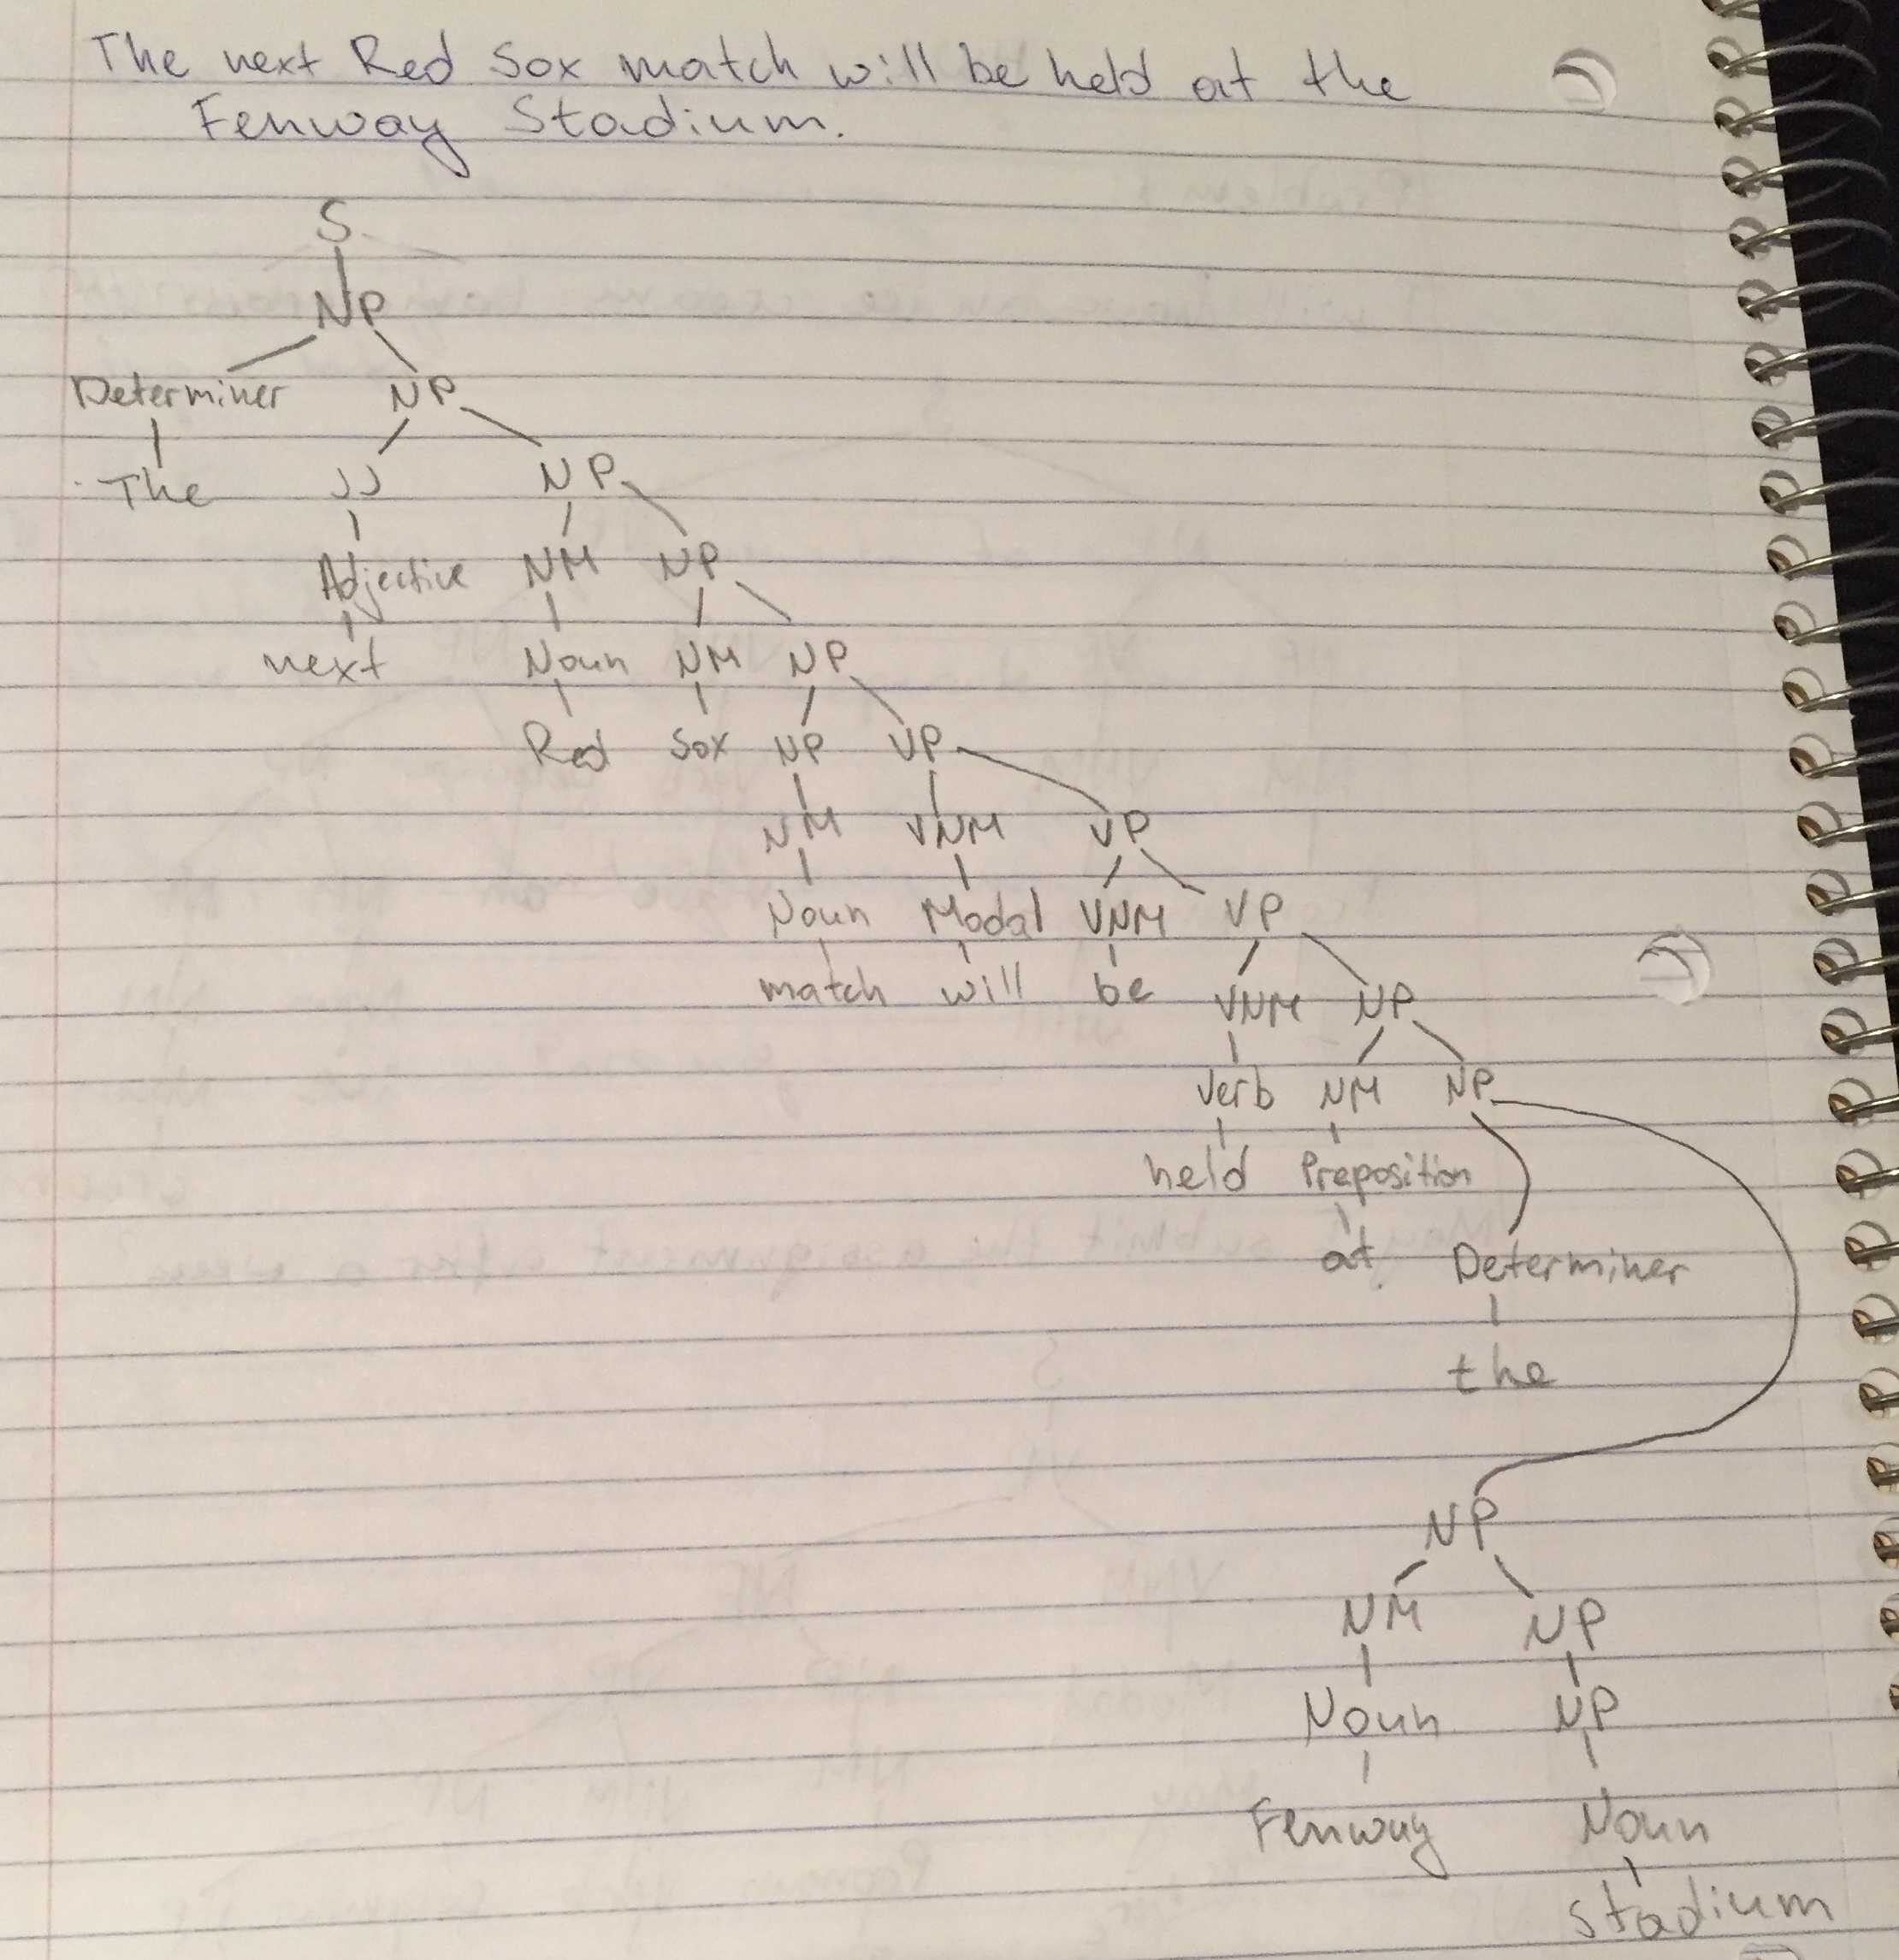 The next Red Sox match will be held at the
Fenway Stadium.
S
NP
Determiner NP
The JJ NP
Adjective NM NP
next Noun NM NP
Red Sox NP VP
NM VNM VP
Noun Modal VNM VP
match will be VNM NP
Verb NM NP
held Preposition
at Determiner
the
NP
NM NP
Noun NP
Fenway Noun
stadium